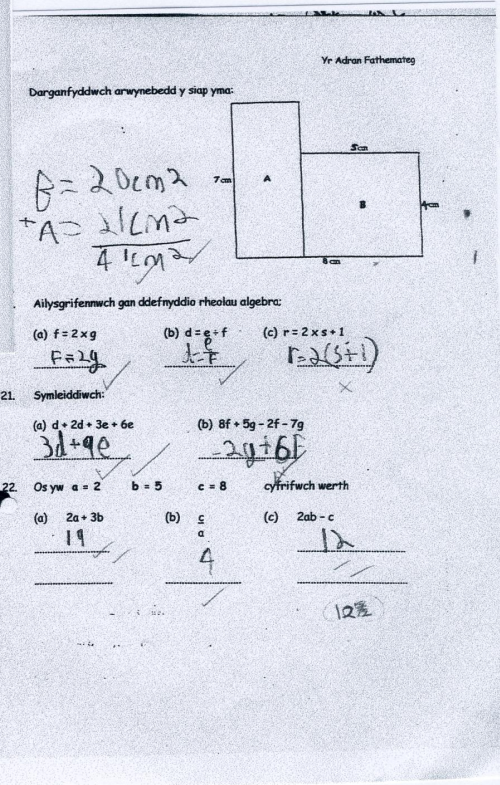 Yr Adran Fathemateg
Darganfyddwch arwynebedd y siap yma:
5cm
7cm A
B = 20cm2
B 4cm
+A = 21cm2
41cm2
8cm
Ailysgrifennwch gan ddefnyddio rheolau algebra;
(a) f = 2 x g (b) d = e ÷ f (c) r = 2 x s + 1
F=2g d=e/F r=2(s+1)
21. Symleiddiwch:
(a) d + 2d + 3e + 6e (b) 8f + 5g - 2f - 7g
3d+9e -2g+6F
22. Os yw a = 2 b = 5 c = 8 cyfrifwch werth
(a) 2a + 3b (b) c/a (c) 2ab - c
19 4 12